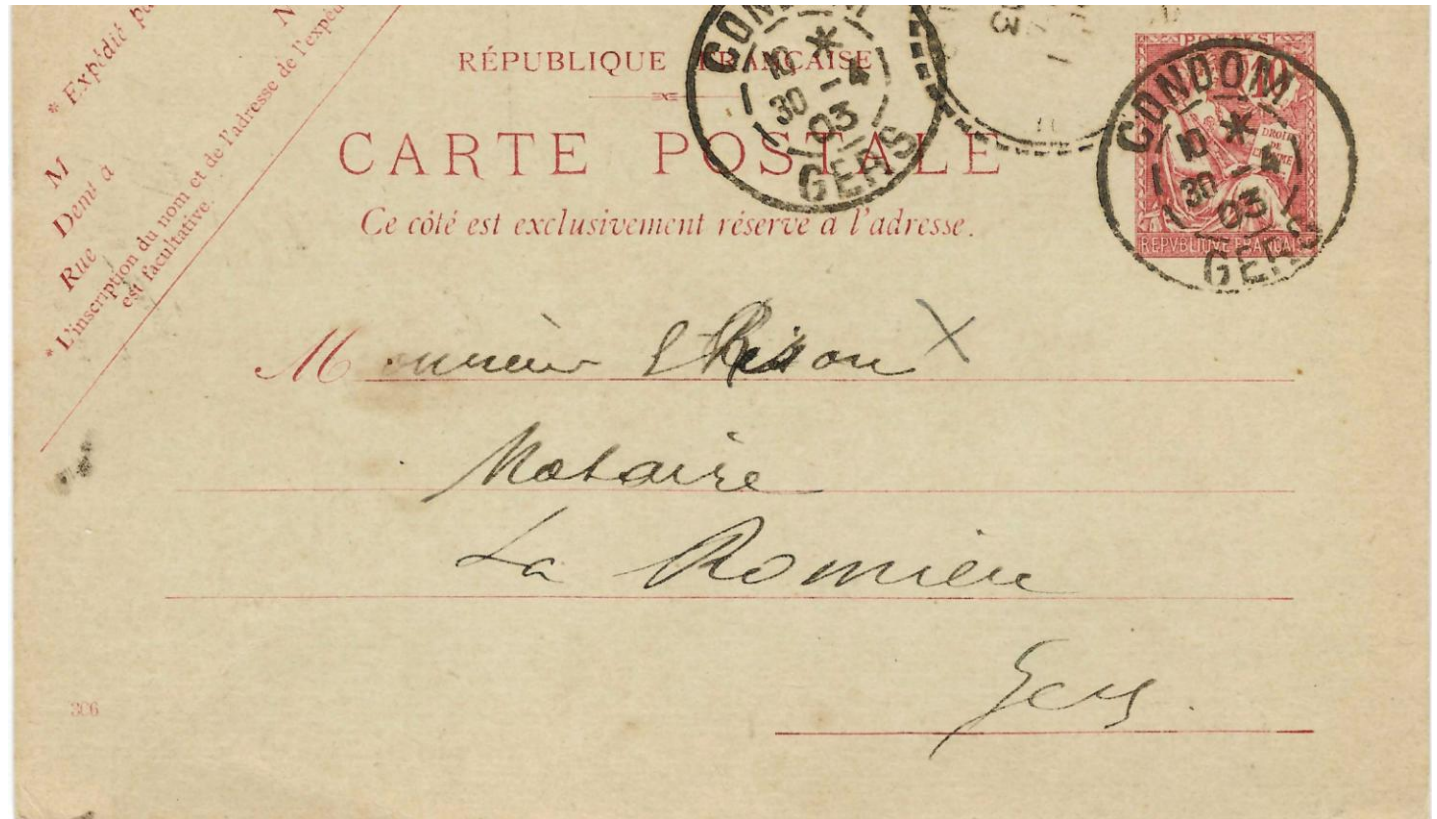 * Expédié pa
M
Demt à
Rue
N
* L'inscription du nom et de l'adresse de l'expéd
est facultative.
RÉPUBLIQUE FRANÇAISE
CARTE POSTALE
Ce côté est exclusivement réservé à l'adresse.
CONDOM
10 *
30 - 4
03
GERS
03
POSTES
10
DROITS
DE
L'HOMME
REPVBLIQVE FRANÇAISE
CONDOM
10 *
30 - 4
03
GERS
Monsieur
Notaire
La Romieu
Gers.
306